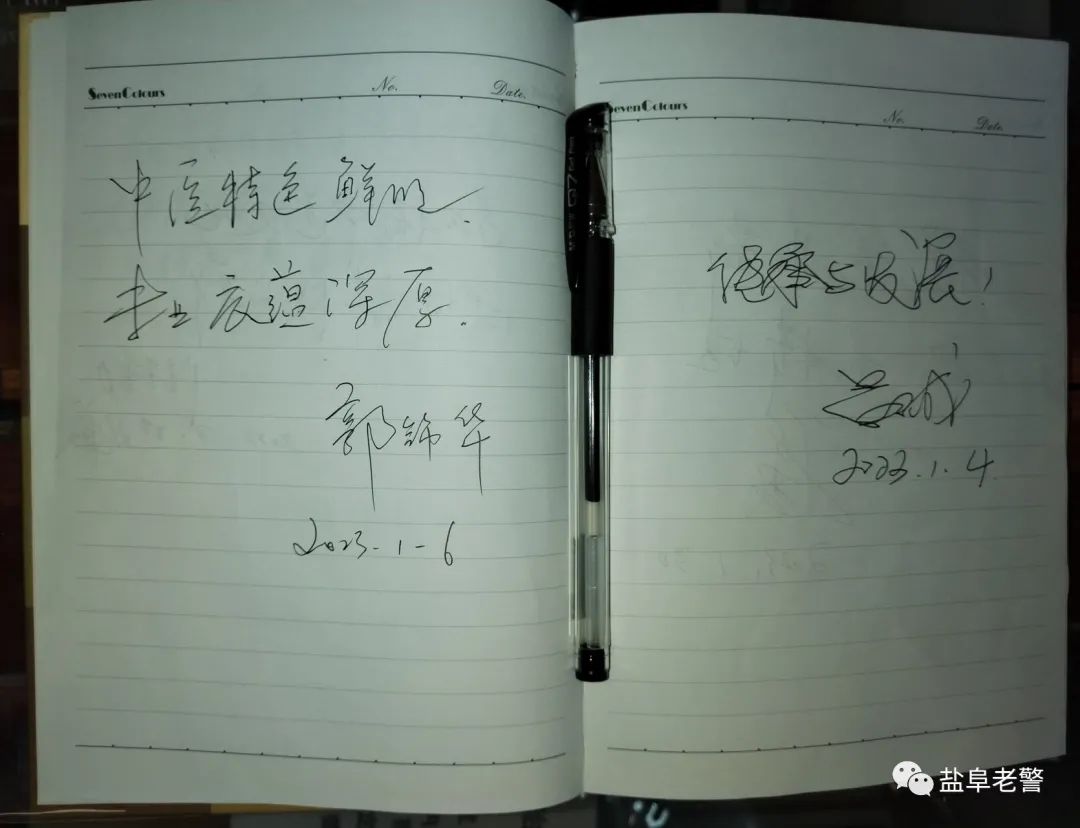 SevenColours No. Date.
中医特色鲜明.
专业底蕴深厚.
郭锦华
2023.1-6
SevenColours No. Date.
继承与发展!
2023.1.4
盐阜老警